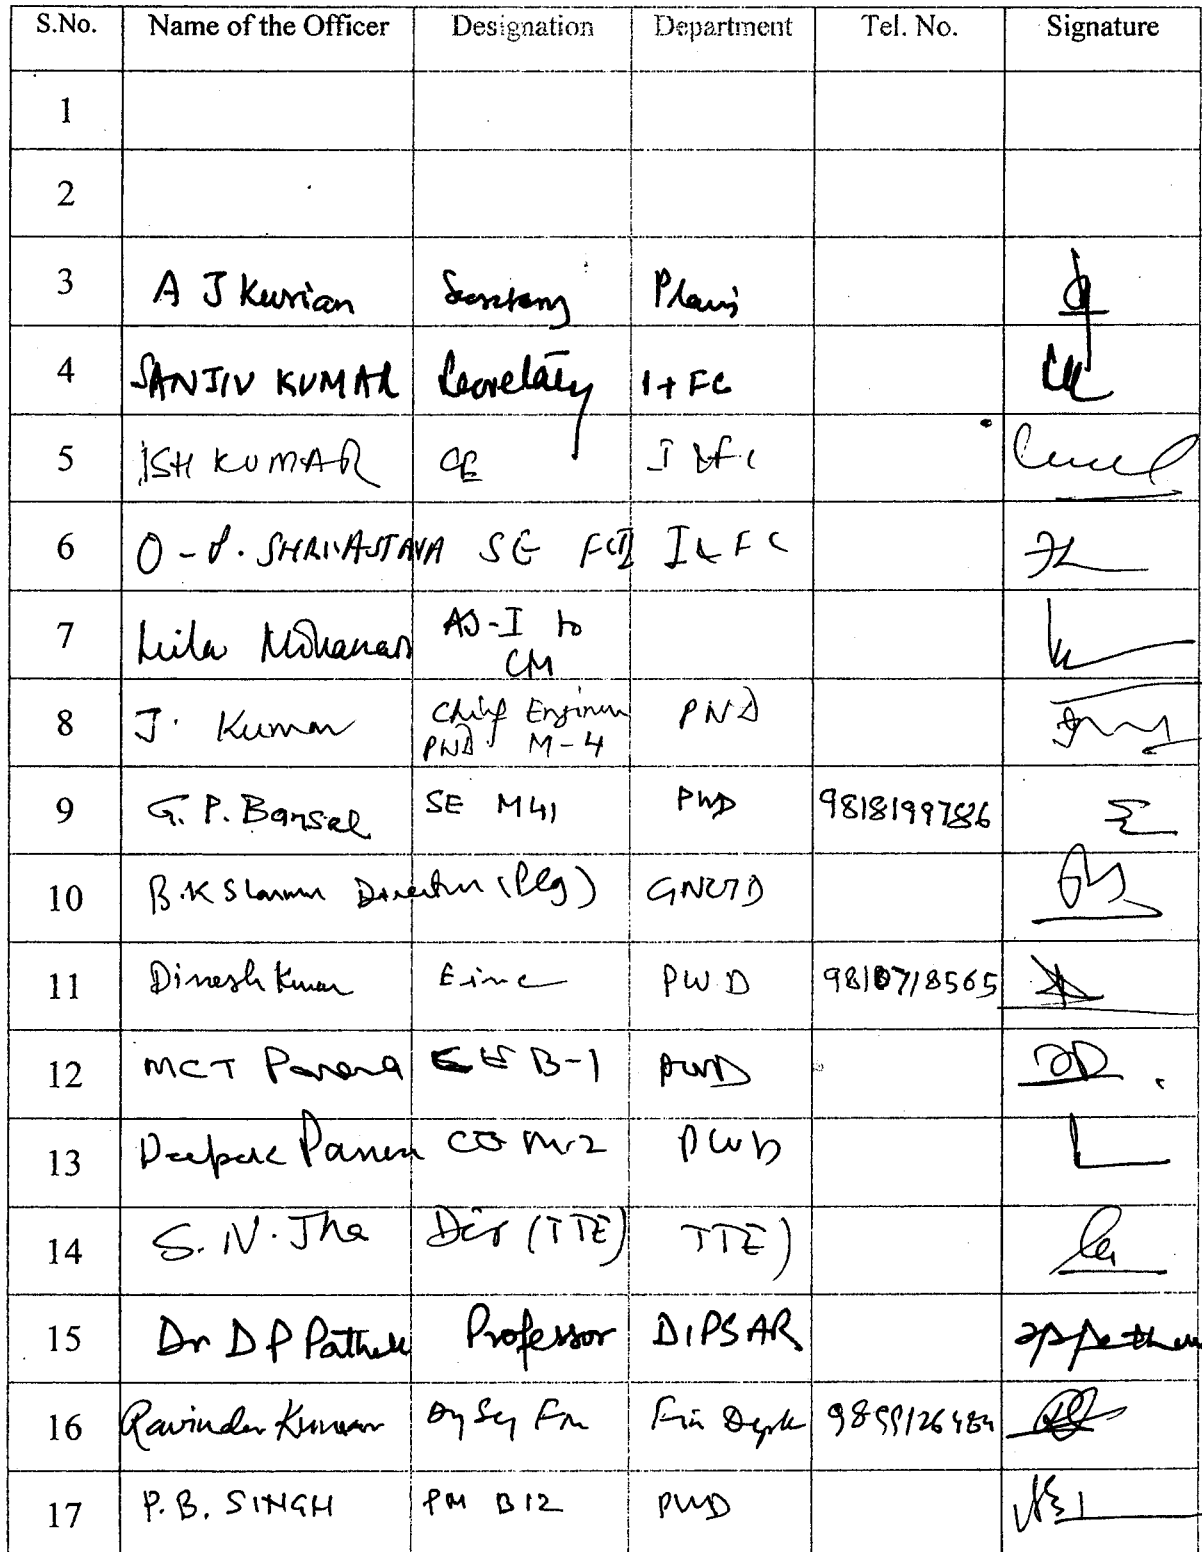 S.No. Name of the Officer Designation Department Tel. No. Signature
1
2
3 A J Kurian Secretary
4 SANJIV KUMAR Secretary I + FC
5 ISH KUMAR CE I & FC
6 O - P. SHRIVASTAVA SE FCII I & FC
7 Mohanan AS-I to
CM
8 J. Kumar Chief Engineer PWD
PWD M-4
9 G. P. Bansal SE M41 PWD 9818199786
10 B.K Sharma Director (Plg) GNCTD
11 Dinesh Kumar E in C PWD 9810718565
12 MCT B-1 PWD
13 Deepak M-2 PWD
14 S. N. Jha Dir (TTE) TTE)
15 Dr D P Pathak Professor DIPSAR
16 Ravinder Kumar Dy Sy Fin Fin Deptt
17 P. B. SINGH PM B12 PWD